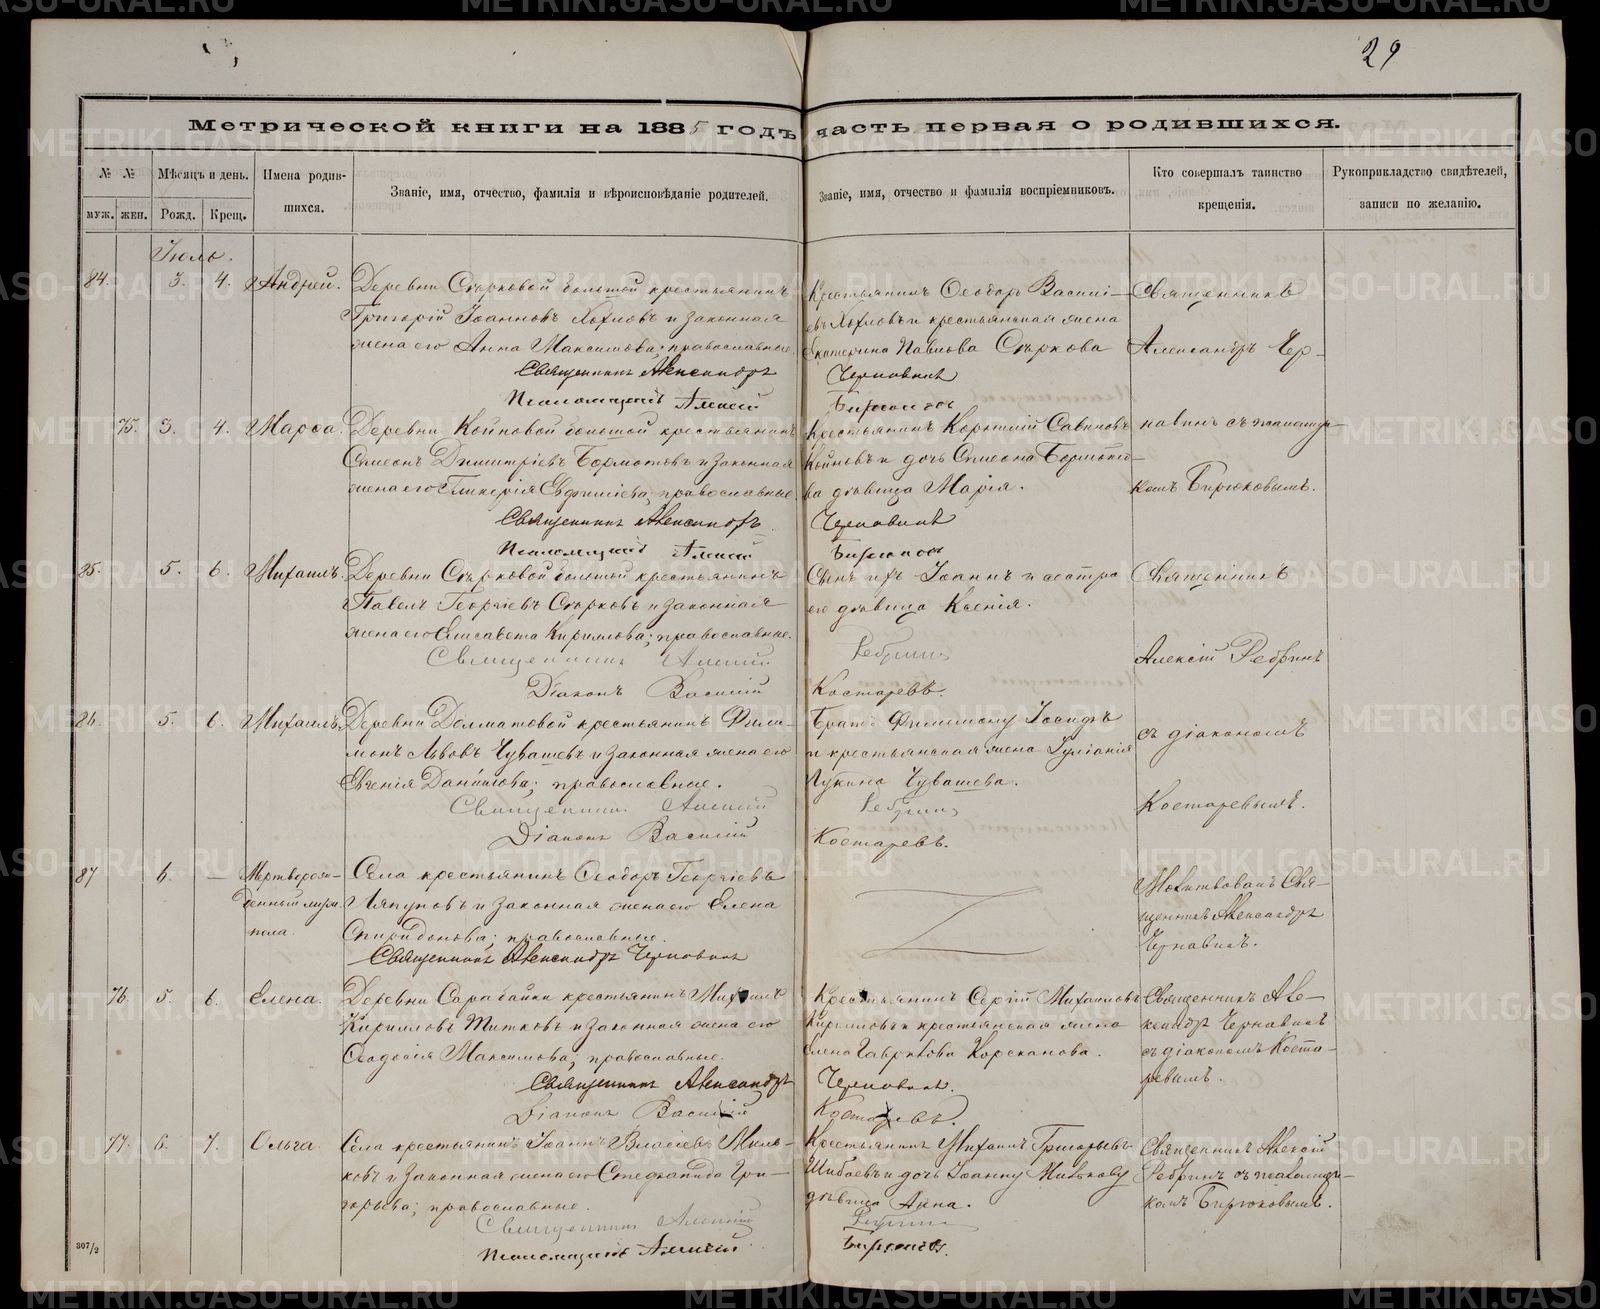 29
Метрической книги на 1885 годъ часть первая о родившихся.
№ № Мѣсяцъ и день. Имена родив-
шихся.
муж. жен. Рожд. Крещ.
Званіе, имя, отчество, фамилія и вѣроисповѣданіе родителей.
Званіе, имя, отчество и фамилія воспріемниковъ.
Кто совершалъ таинство
крещенія.
Рукоприкладство свидѣтелей,
записи по желанію.
Іюль.
84. 3. 4. Андрей. Деревни Сырковой большой крестьянинъ
Григорій Іоанновъ Хохловъ и законная
жена его Анна Максимова; православные.
Священникъ Александръ
Псаломщикъ Алексій
Крестьянинъ Ѳеодоръ Васильі-
евъ Хохловъ и крестьянская жена
Екатерина Павлова Сыркова
Чернавинъ
Бирюковъ
Священникъ
Александръ Чер-
75. 3. 4. Марѳа. Деревни Койновой большой крестьянинъ
Симеонъ Димитріевъ Бормотовъ и законная
жена его Гликерія Евфиміева; православные.
Священникъ Александръ
Псаломщикъ Алексій
Крестьянинъ Корнилій Савиновъ
Койновъ и дочь Симеона Бормото-
ва дѣвица Марія.
Чернавинъ
Бирюковъ
навинъ съ псаломщи-
комъ Бирюковымъ.
85. 5. 6. Михаилъ. Деревни Сырковой большой крестьянинъ
Павелъ Георгіевъ Сырковъ и законная
жена его Елисавета Кириллова; православные.
Священникъ Алексій
Діаконъ Василій
Сынъ ихъ Іоаннъ и сестра
его дѣвица Ксенія.
Ребринъ
Костаревъ.
Священникъ
Алексій Ребринъ
86. 5. 6. Михаилъ. Деревни Долматовой крестьянинъ Фили-
монъ Львовъ Чувашевъ и законная жена его
Евгенія Даніилова; православные.
Священникъ Алексій
Діаконъ Василій
Братъ Филимону Іосифъ
и крестьянская жена Іуліанія
Лукина Чувашева.
Ребринъ
Костаревъ.
съ діакономъ
Костаревымъ.
87 6. — Мертворож-
денный муж.
пола.
Села крестьянинъ Ѳеодоръ Георгіевъ
Ляпуновъ и законная жена его Елена
Спиридонова; православные.
Священникъ Александръ Чернавинъ
Молитвовалъ Свя-
щенникъ Александръ
Чернавинъ.
76. 5. 6. Елена. Деревни Сарабайки крестьянинъ Михаилъ
Кирилловъ Титковъ и законная жена его
Ѳеодосія Максимова; православные.
Священникъ Александръ
Діаконъ Василій
Крестьянинъ Сергій Михаиловъ
Кирилловъ и крестьянская жена
Елена Гаврилова Корсканова.
Чернавинъ.
Костаревъ.
Священникъ Але-
ксандръ Чернавинъ
съ діакономъ Коста-
ревымъ.
77. 6. 7. Ольга. Села крестьянинъ Іоаннъ Власіевъ Миль-
ковъ и законная жена его Стефанида Гри-
горьева; православные.
Священникъ Алексій
Псаломщикъ Алексій
Крестьянинъ Михаилъ Григорьевъ
Шибаевъ и дочь Іоанну Милькову
дѣвица Анна.
Ребринъ
Бирюковъ.
Священникъ Алексій
Ребринъ съ псаломщи-
комъ Бирюковымъ.
307/2
METRIKI.GASO-URAL.RU